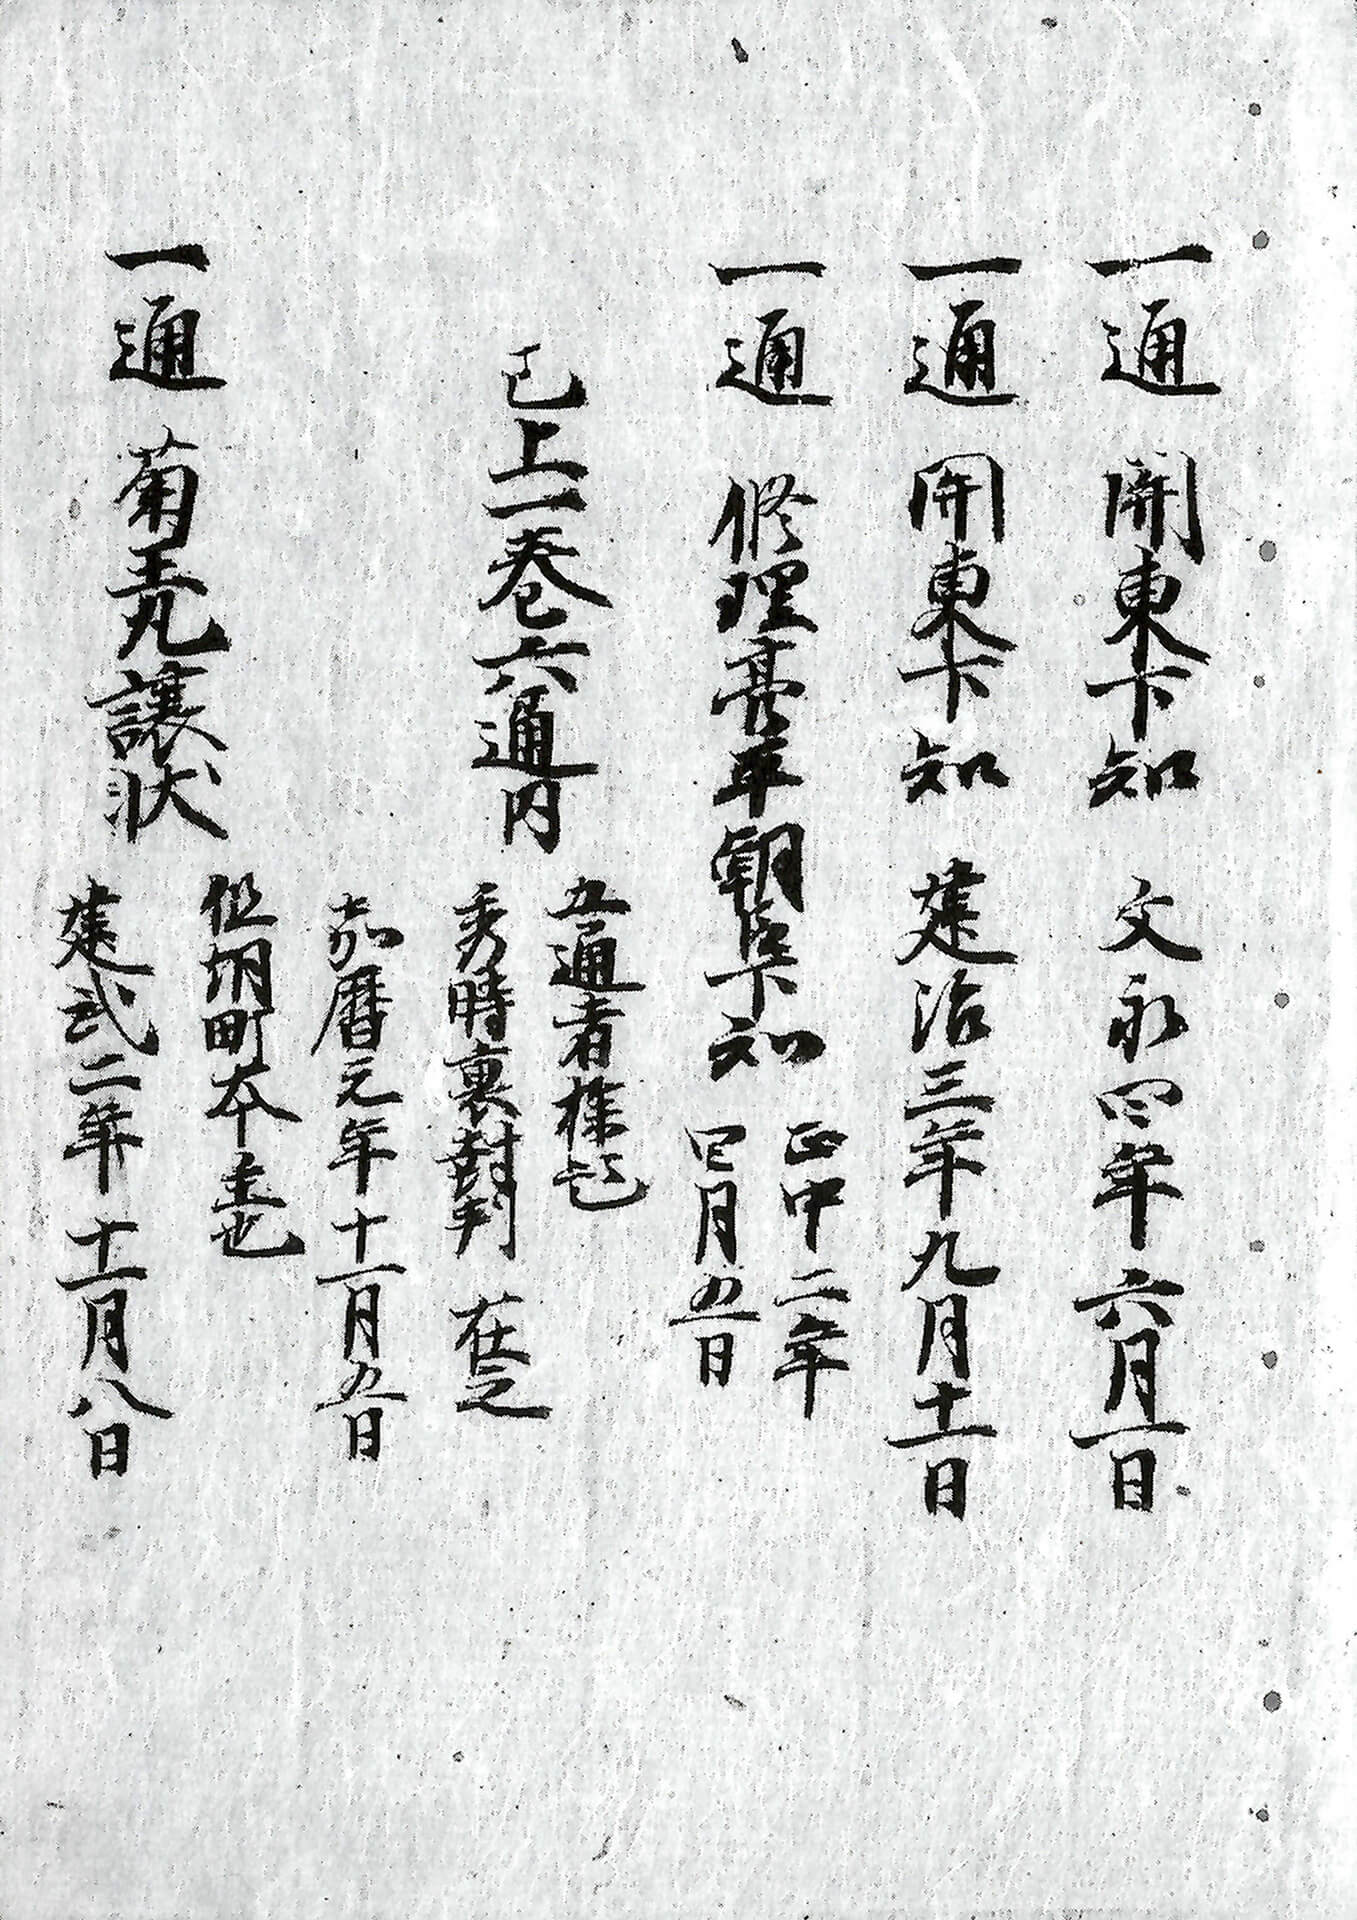 一通　関東下知　文永四年六月一日
一通　関東下知　建治三年九月十一日
一通　修理亮平朝臣下知　正中二年
四月五日
已上一巻六通内　五通者
秀時裏封判　在之
嘉暦元年十一月五日
一通　菊王丸譲状　但
町本主也
建武二年十一月八日